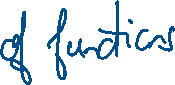 of functions